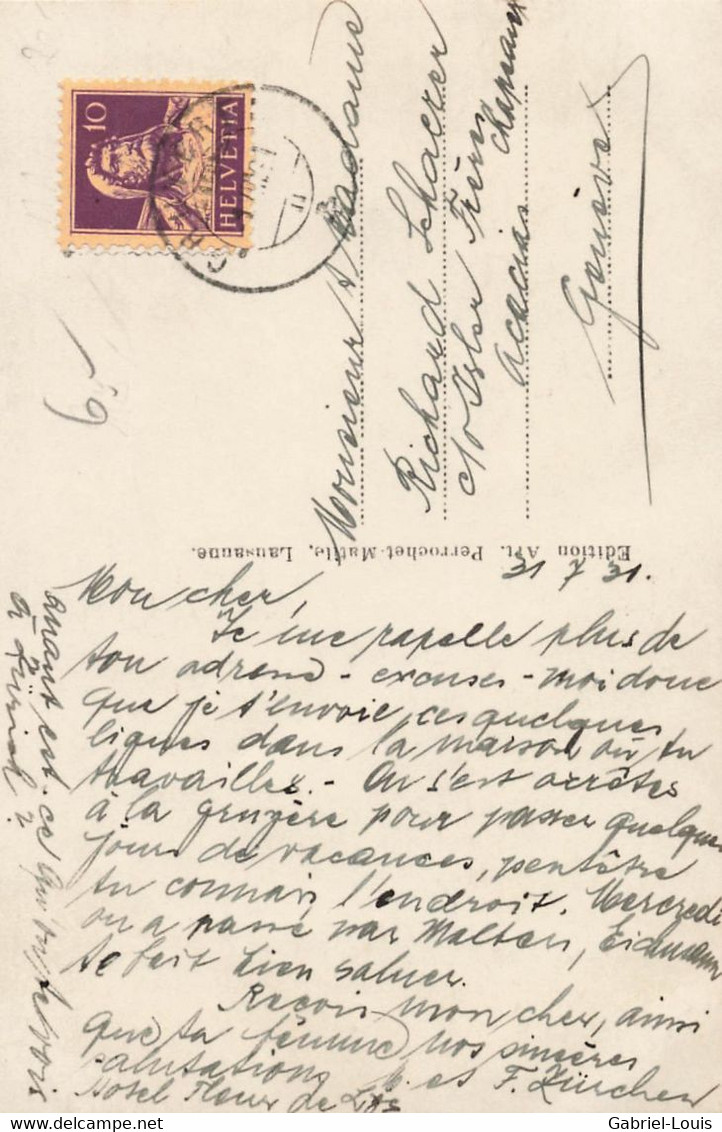 10
HELVETIA
Monsieur & Madame
Richard Schaerer
c/o Isler Frères
Acacias Chapeaux
Genève
Edition Art. Perrochet-Matile, Lausanne.
31 7 31.
Mon cher,
Je me rapelle plus de
ton adresse - excuses-moi donc
que je t'envoie ces quelques
lignes dans la maison où tu
travailles. - On s'est arrêtés
à la gruyère pour passer quelques
jours de vacances, peutêtre
tu connais l'endroit. Mercredi
on a passé par Malters,
te fait bien saluer.
Reçois mon cher, ainsi
que ta femme nos sincères
salutations. et F. Zürcher
Hotel Fleur de Lys
quant est-ce qu'on te voit
à Zürich?
Gabriel-Louis